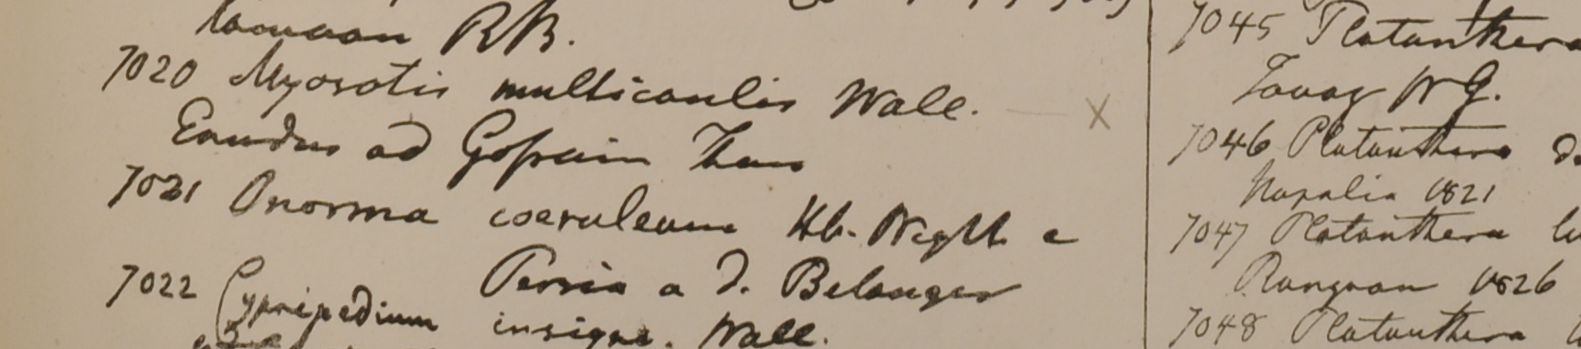 R Br.
7020 Myosotis multicaulis Wall. — X
Eundus ad Gossain Than
7021 Onosma coeruleum Hb. Wight e
Persia a d. Belanger
7022 Cypripedium insigne. Wall.
7045 Platanthera
7046 Platanthera
Napalia 1821
7047 Platanthera
Rangoon 1826
7048 Platanthera